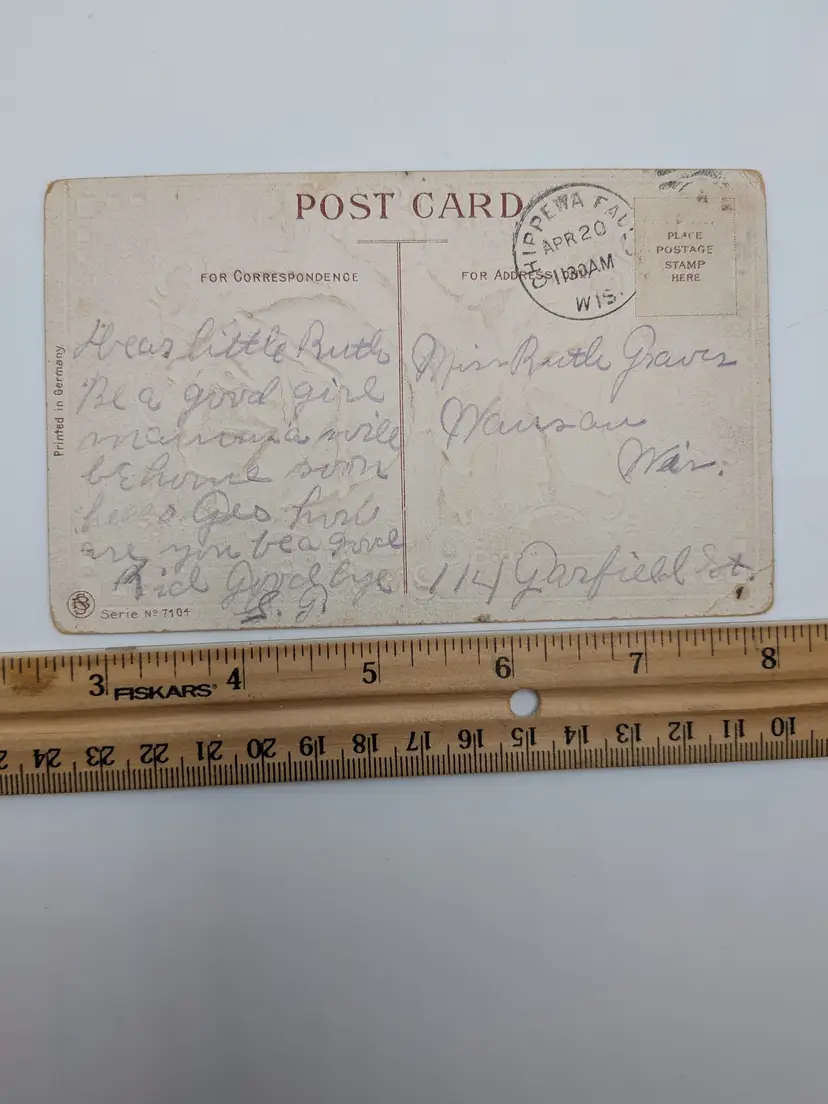 POST CARD
CHIPPEWA FALLS
APR 20
11 30 AM
WIS.
PLACE
POSTAGE
STAMP
HERE
FOR CORRESPONDENCE
FOR ADDRESS ONLY
Printed in Germany.
Dear little Ruth
Be a good girl
mamma will
be home soon
Geo how
are you be a good
Kid Goodbye
S. G.
Miss Ruth Graves
Wausau
Wis.
114 Garfield St.
Serie No 7104
3 FISKARS 4 5 6 7 8
24 23 22 21 20 19 18 17 16 15 14 13 12 11 10